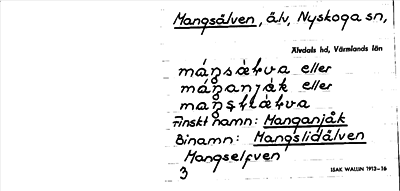 Mangsälven, älv, Nyskoga sn,
Älvdals hd, Värmlands län
eller
eller
Finskt namn: Manganjåk
Binamn: Mangslidälven
Mangselfven
3
ISAK WALLIN 1913-16